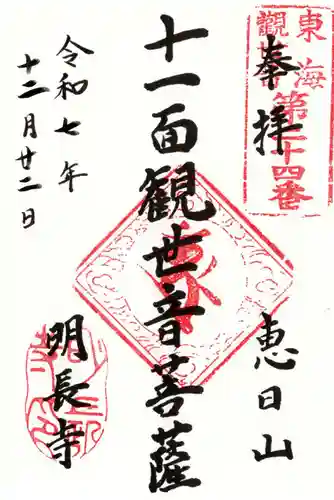 東海
觀音
第二十四番
奉拝
恵日山
十一面観世音菩薩
令和七年
十二月廿二日
明長寺